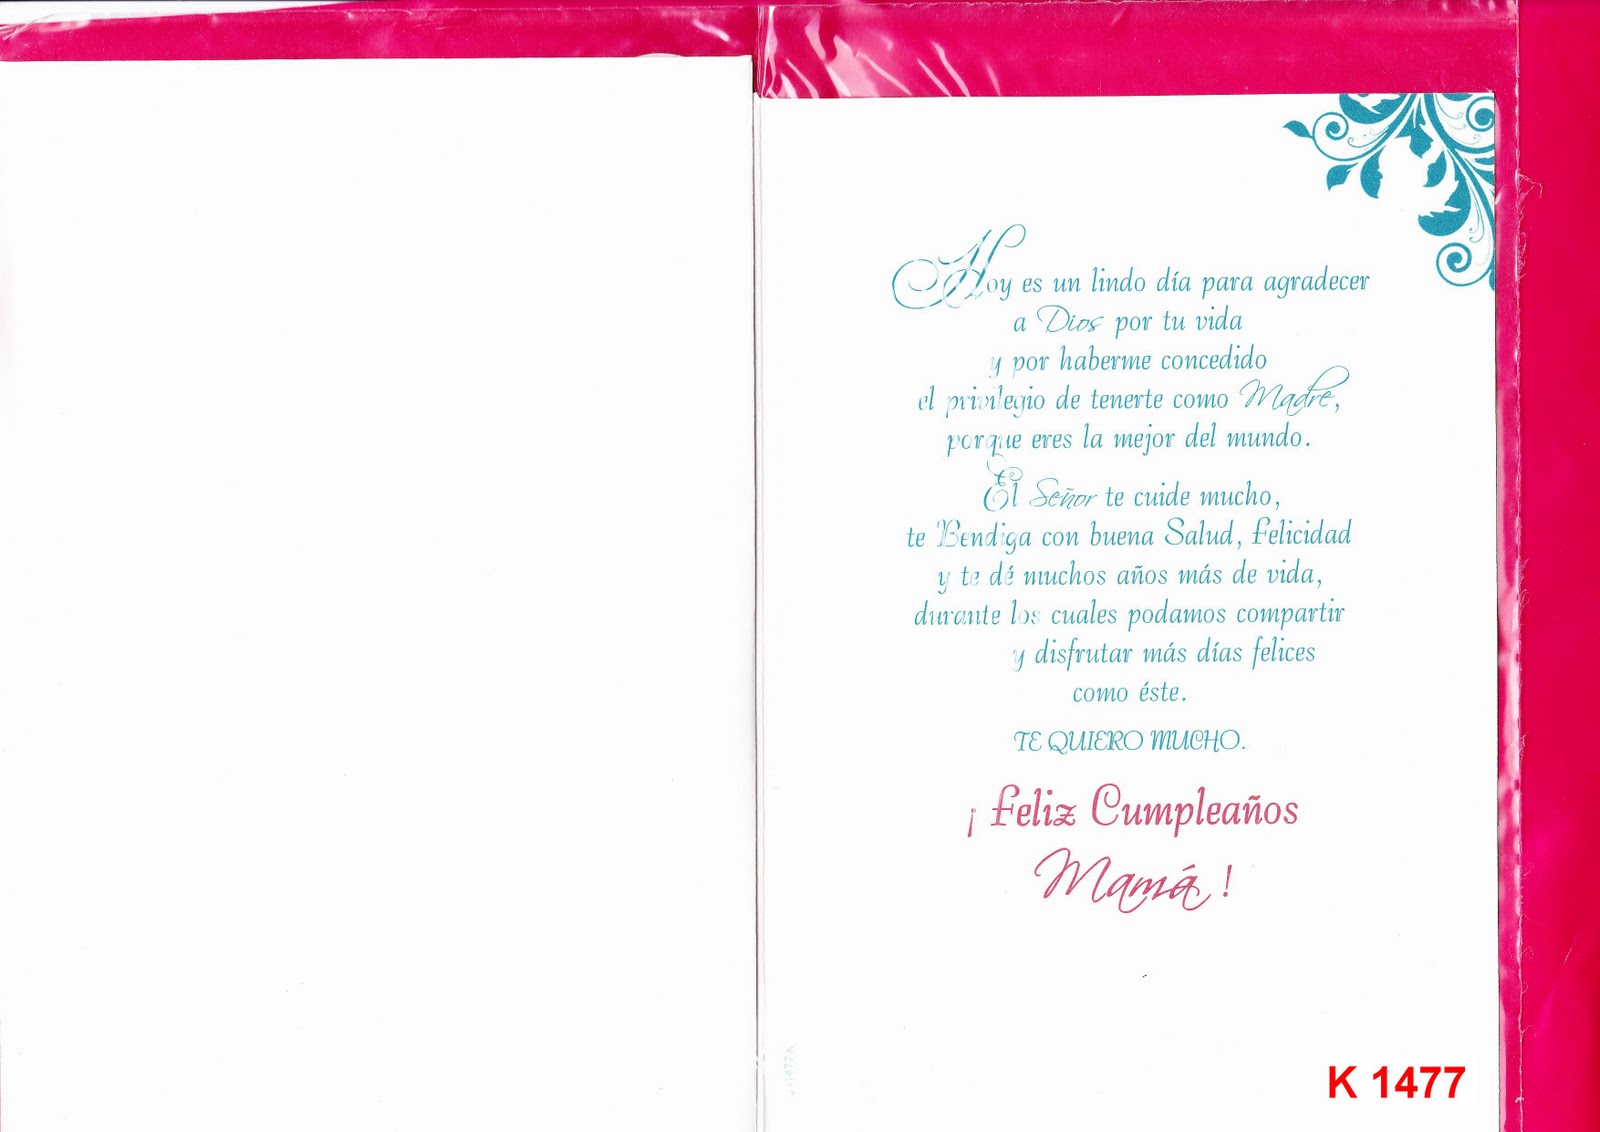 Hoy es un lindo día para agradecer
a Dios por tu vida
y por haberme concedido
el privilegio de tenerte como Madre,
porque eres la mejor del mundo.
El Señor te cuide mucho,
te Bendiga con buena Salud, Felicidad
y te dé muchos años más de vida,
durante los cuales podamos compartir
y disfrutar más días felices
como éste.
TE QUIERO MUCHO.
¡ Feliz Cumpleaños
Mamá !
K 1477